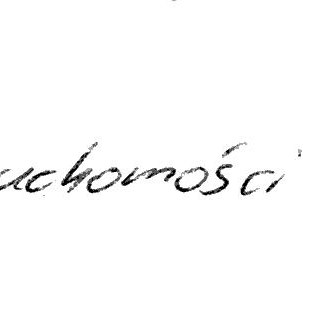 uchomości